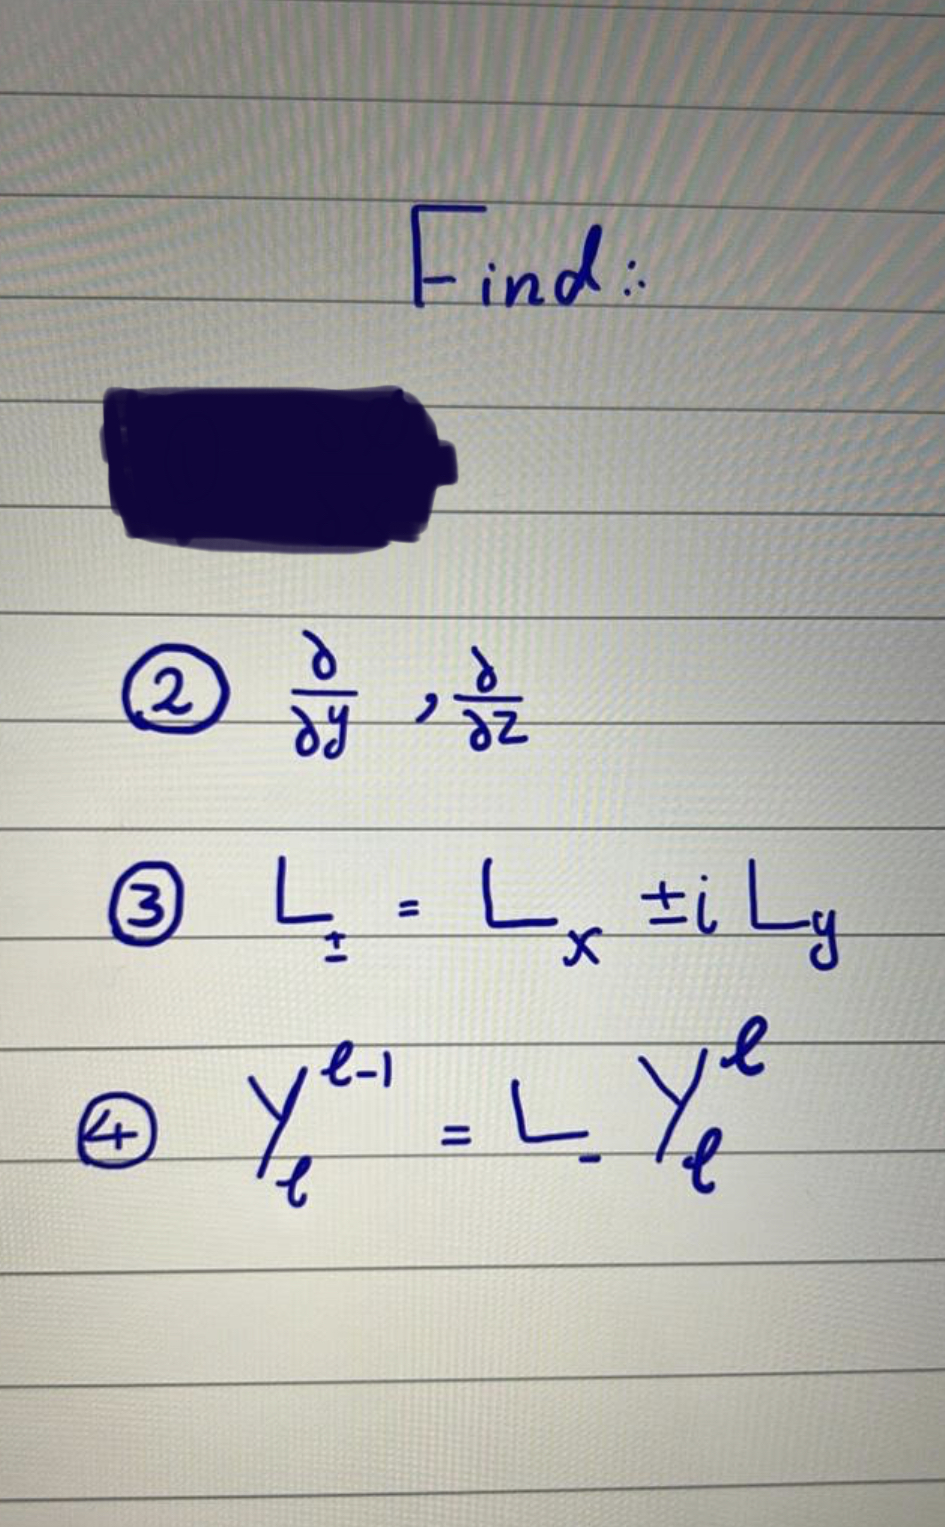 Find:
② ∂/∂y , ∂/∂z
③ L_± = L_x ± i L_y
④ Y_ℓ^{ℓ-1} = L_- Y_ℓ^ℓ